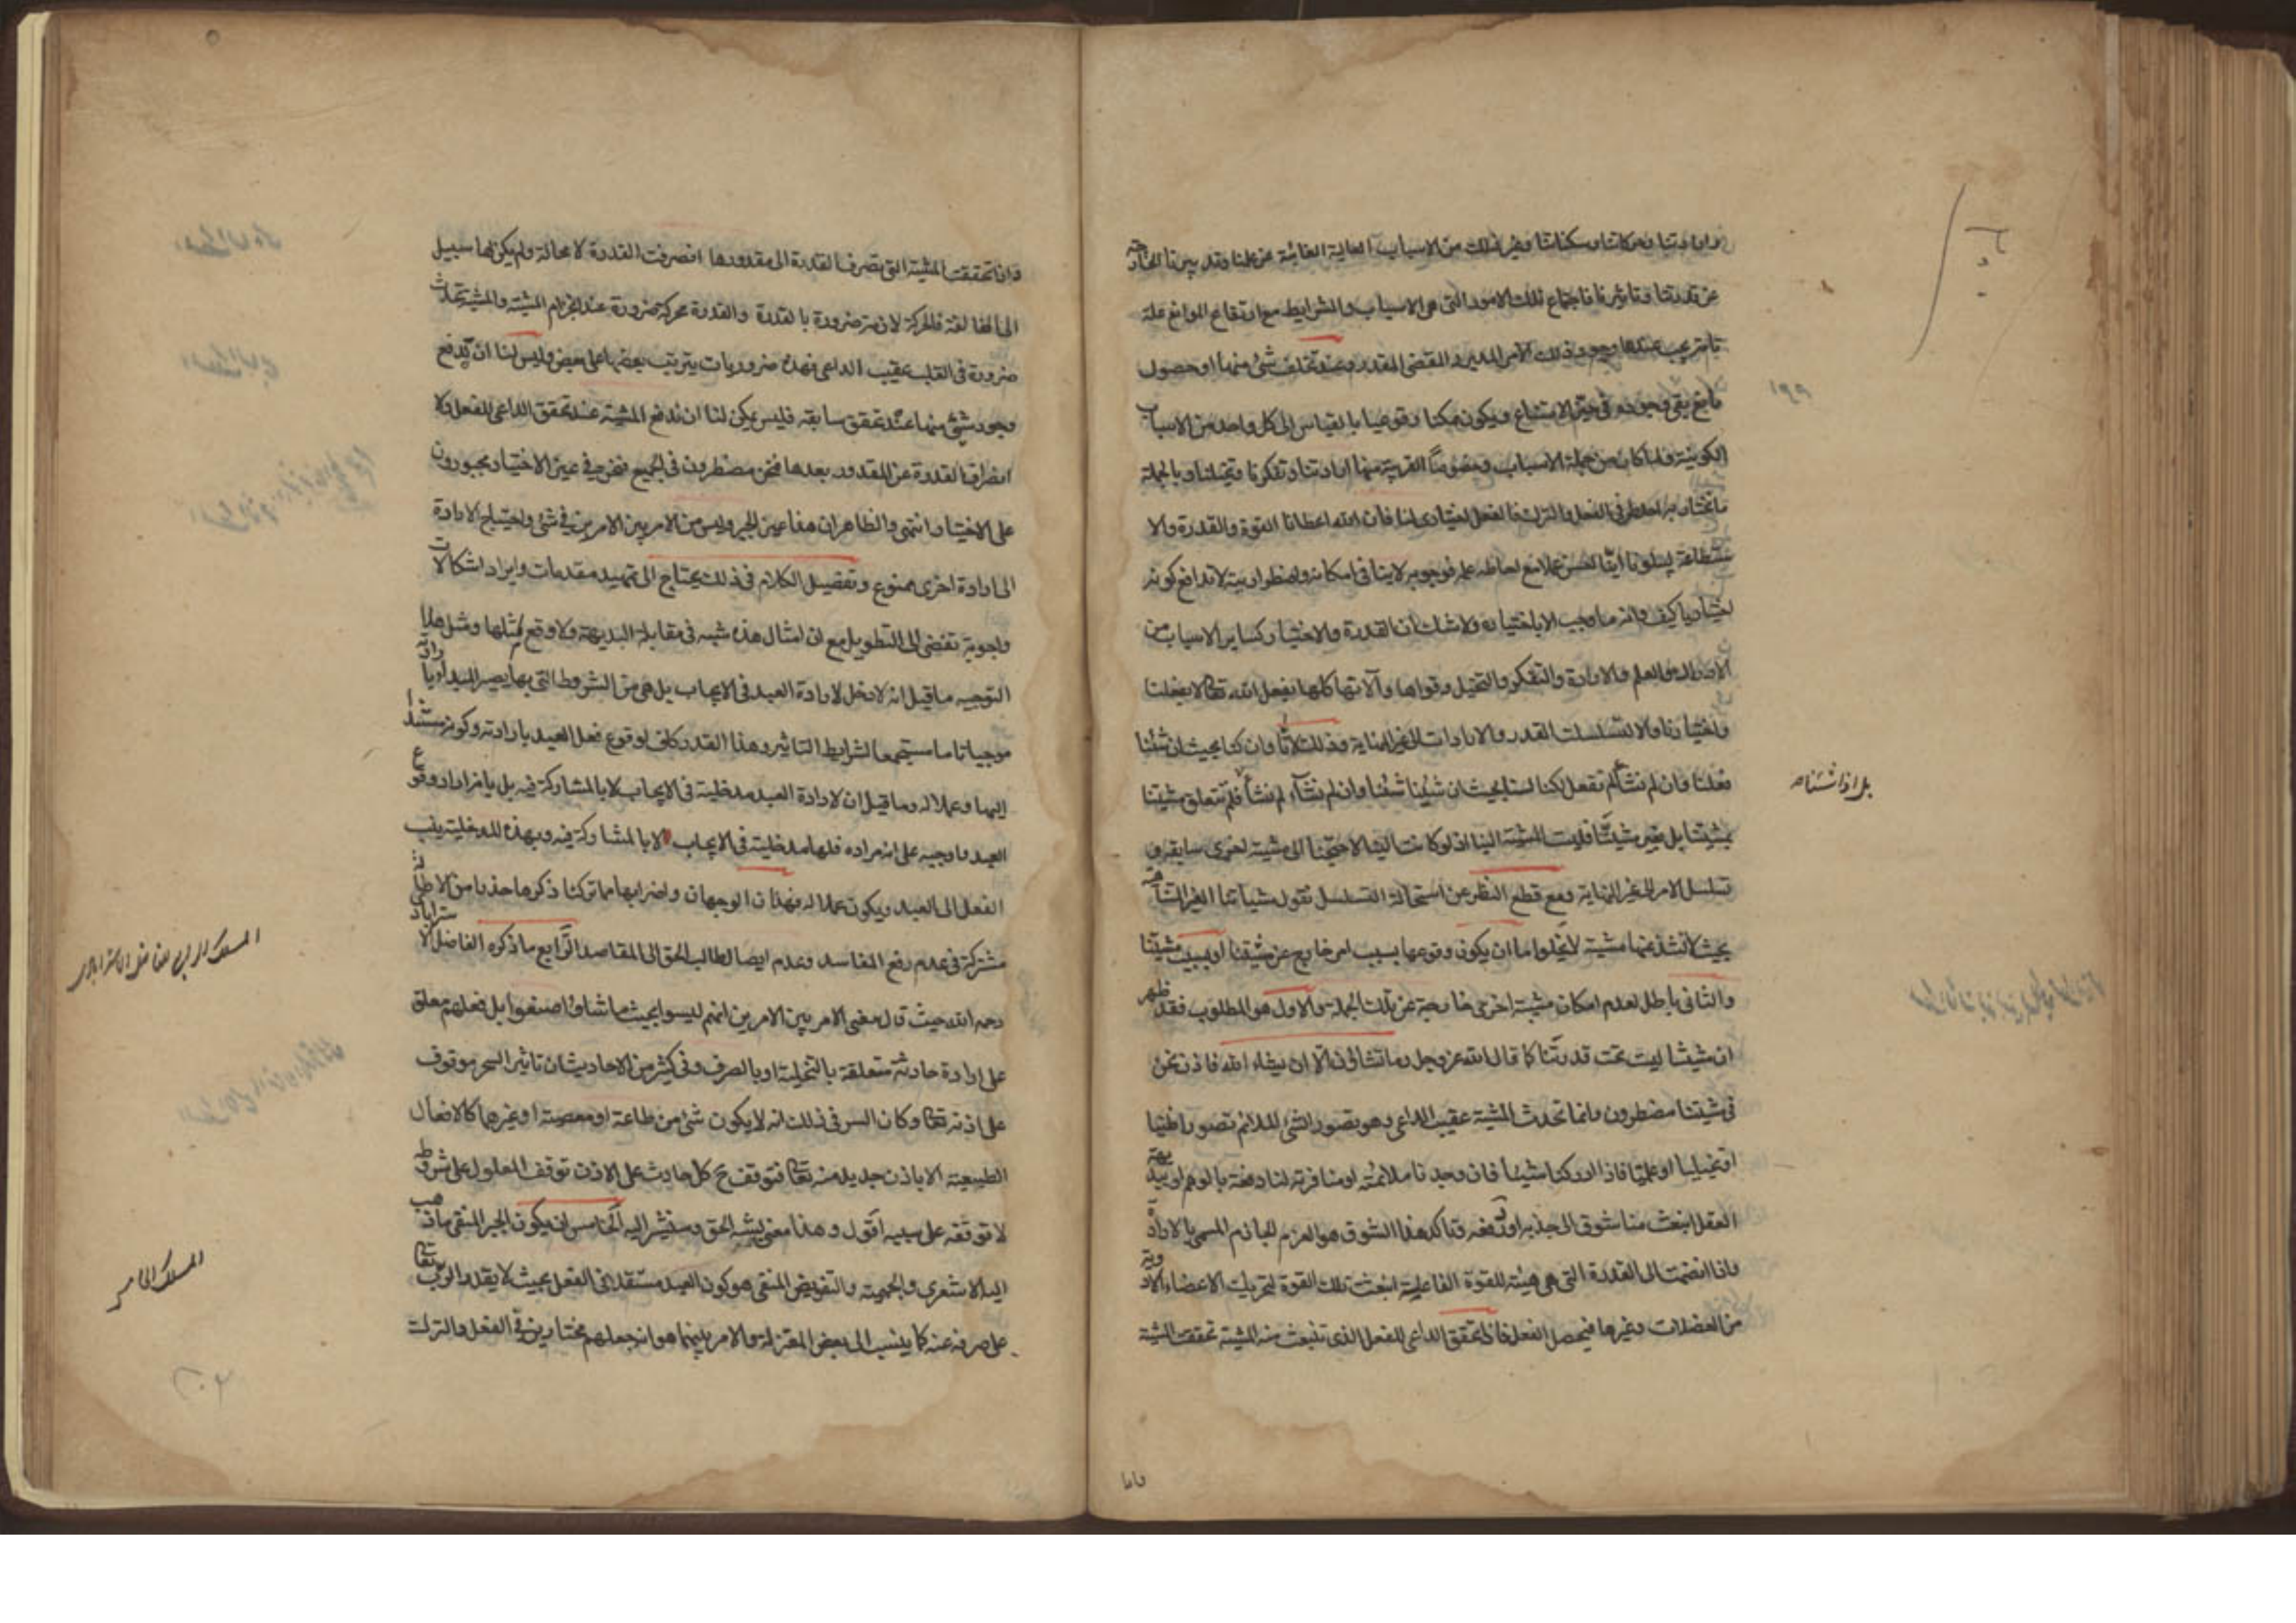 وارادتنا وحركاتنا وسكناتنا وغير ذلك من الاسباب العالية الغائبة عن علمنا وتدبيرنا الخارجة
عن قدرتنا وتاثيرنا فاجتماع تلك الامور التي هي الاسباب والشرايط مع ارتفاع الموانع علة
تامة يجب عندها وجود ذلك الامر المدبر والمقضى المقدر وعند تخلف شئ منها او حصول
مانع بقى وجوده في حيز الامتناع ويكون ممكنا وقوعيا بالقياس الى كل واحد من الاسباب
الكونية ولما كان من جملة الاسباب وخصوصاً القريبة منها ارادتنا وتفكرنا وتخيلنا وبالجملة
ما نختار به احد طرفي الفعل والترك فالفعل اختيارى لنا فان الله اعطانا القوة والقدرة والا
ستطاعة ليبلونا ايّنا احسن عملا مع احاطة علمه فوجوبه لا ينافي امكانه واضطراريته لا تدافع كونه
اختياريا كيف وانه ما وجب الا باختياره ولا شك ان القدرة والاختيار كساير الاسباب من
الادراك والعلم والارادة والتفكر والتخيل وقواها وآلاتها كلها بفعل الله تعا لا بفعلنا
واختيارنا والا لتسلسلت القدر والارادات الى غير النهاية وذلك لانّا وان كنا بحيث ان شئنا
فعلنا وان لم نشأ لم نفعل لكنا لسنا بحيث ان شئنا شئنا وان لم نشآء لم نشأ فلم تتعلق مشيتنا
بل اذا شئناه
بمشيتنا بل بغير مشيتّنا فليست المشية الينا اذ لو كانت الينا لاحتجنا الى مشية اخرى سابقة و
تسلسل الامر الى غير النهاية ومع قطع النظر عن استحالة التسلسل نقول مشياتنا الغير المتناهية
بحيث لا تشذ عنها مشية لا يخلوا ما ان يكون وقوعها بسبب امر خارج عن مشيتنا او بسبب مشيتنا
والثانى باطل لعدم امكان مشية اخرى خارجة عن تلك الجملة والاول هو المطلوب فقد ظهر
ان مشيتنا ليست تحت قدرتنا كما قال الله عز وجل وما تشاؤن الّا ان يشاء الله فاذن نحن
فى مشيتنا مضطرون وانما تحدث المشية عقيب الداعى وهو تصور الشئ الملائم تصورا ظنيا
او تخيليا او علميا فاذا ادركنا شيئا فان وجدنا ملائمته او منافرته لنا دفعة بالوهم او ببديهة
العقل انبعث منا شوق الى جذبه او دفعه وتاكد هذا الشوق هو العزم الجازم المسمى بالارادة
واذا انضمت الى القدرة التي هي هيئة للقوة الفاعلية انبعثت تلك القوة لتحريك الاعضاء الادوية
من العضلات وغيرها فيحصل الفعل فاذا تحقق الداعى للفعل الذى تنبعث منه المشية تحققت المشية
فاذا
١٩٩
فاذا تحققت المشية التى تصرف القدرة الى مقدورها انصرفت القدرة لا محالة ولم يكن لها سبيل
الى المخالفة فالحركة لازمة ضرورة بالقدرة والقدرة محركة ضرورة عند انجزام المشية والمشية تحدث
ضرورة فى القلب عقيب الداعى فهذه ضروريات يترتب بعضها على بعض وليس لنا ان ندفع
وجود شئ منها عند تحقق سابقه فليس يمكن لنا ان ندفع المشية عند تحقق الداعى للفعل ولا
انصراف القدرة عن المقدور بعدها فنحن مضطرون فى الجميع فنحن فى عين الاختيار مجبورون
على الاختيار انتهى والظاهر ان هذا عين الجبر وليس من الامر بين الامرين فى شئ واحتياج الارادة
الى ارادة اخرى ممنوع وتفصيل الكلام فى ذلك يحتاج الى تمهيد مقدمات وايراد اشكالات
واجوبة تفضى الى التطويل مع ان امثال هذه شبه فى مقابلة البديهة ولا وقع لمثلها ومثل هذا
التوجيه ما قيل انه لا دخل لارادة العبد فى الايجاب بل هى من الشروط التى بها يصير المبدأ بارادته
موجبا تاما مستجمعا لشرايط التاثير وهذا القدر كاف لوقوع فعل العبد بارادته وكونه مستندا
اليها وعملا له وما قيل ان لارادة العبد مدخلية فى الايجاب لا بالمشاركة فيه بل بانه اراد وقوع
العبد واوجبه على انه مراده فلها مدخلية فى الايجاب لا بالمشاركة فيه وبهذه المدخلية ينسب
الفعل الى العبد ويكون عملا له فهذان الوجهان واضرابهما مما تركنا ذكرها حذرا من الاطالة
مشتركة فى عدم رفع المفاسد وعدم ايصال طالب الحق الى المقاصد الرّابع ما ذكره الفاضل الاستراباد
المسلك الرابع للفاضل الاسترابادى
رحمه الله حيث قال معنى الامر بين الامرين انهم ليسوا بحيث ما شاؤا صنعوا بل فعلهم معلق
على ارادة حادثة متعلقة بالتخلية او بالصرف وفى كثير من الاحاديث ان تاثير السحر موقوف
على اذنه تعا وكان السر فى ذلك انه لا يكون شئ من طاعة او معصية او غيرهما كالافعال
الطبيعية الا باذن جديد منه تعا فتوقف ح كل حادث على الاذن توقف المعلول على شروطه
لا توقفه على سببه اقول وهذا معنى يشبه الحق وسنشير اليه الخامس ان يكون الجبر المنفى ما ذهب
المسلك الخامس
اليه الاشعرى والجهمية والتفويض المنفى هو كون العبد مستقلا فى الفعل بحيث لا يقدر الرب تعا
على صرفه عنه كما ينسب الى بعض المعتزلة والامر بينهما هو انه جعلهم مختارين فى الفعل والترك